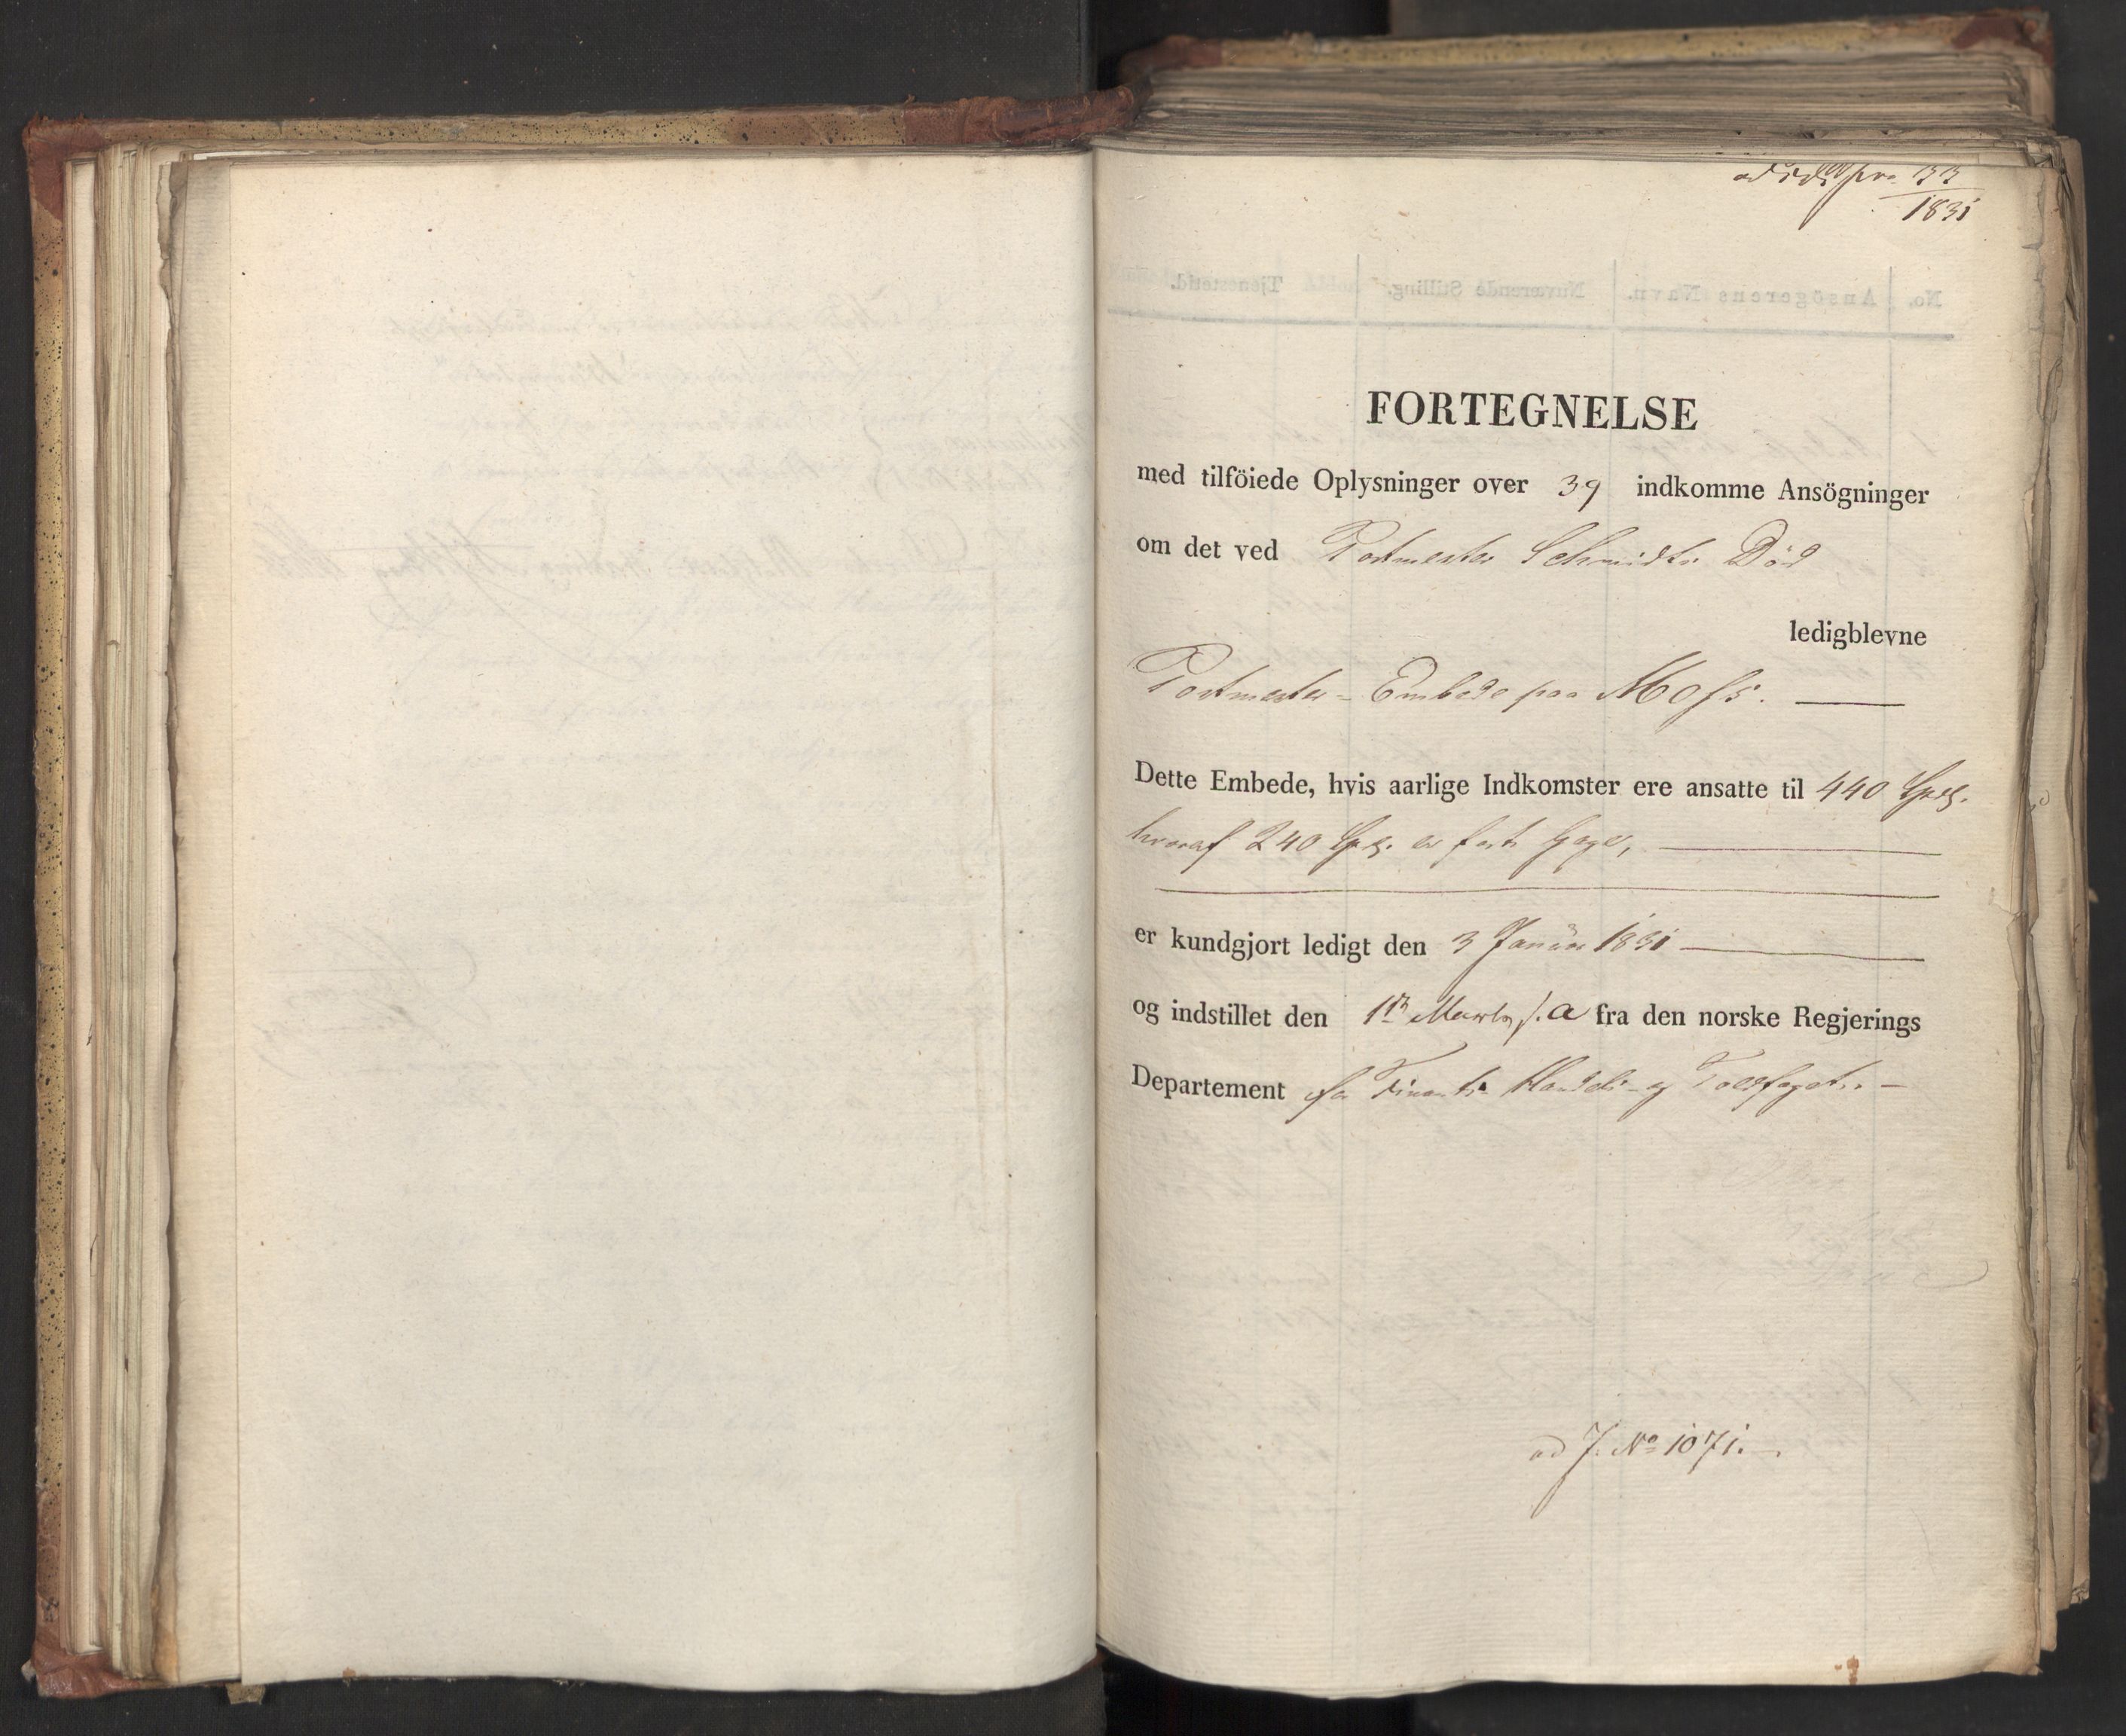 33
1831
FORTEGNELSE
med tilföiede Oplysninger over 39 indkomme Ansögninger
om det ved Postmester Schmidts Död
ledigblevne
Postmester-Embede paa Mofs.
Dette Embede, hvis aarlige Indkomster ere ansatte til 440 Spd.
hvoraf 240 Spd. er fast Gage,
er kundgjort ledigt den 3 Januar 1831
og indstillet den 1ste Marts s. A fra den norske Regjerings
Departement for Finants- Handels- og Toldfaget.
ad J. No 1071.